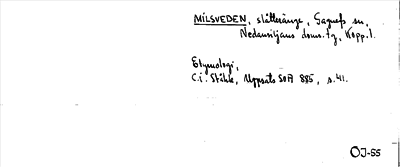 MILSVEDEN, slåtteränge, Gagnefs sn,
Nedansiljans doms.fg, Kopp.l.
Etymologi,
C.I. Ståhle, Uppsats SOÄ 885, s.41.
OJ-55